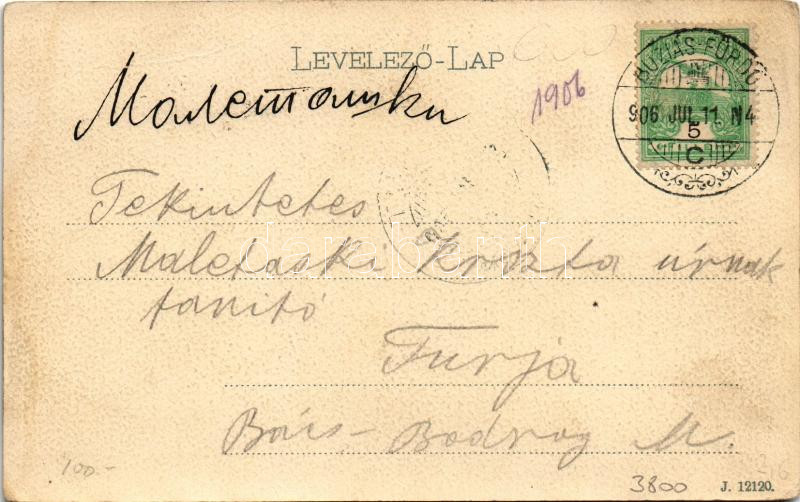 LEVELEZŐ-LAP
Малеташки
1906
BUZIÁS-FÜRDŐ
906 JUL. 11. N4
5
C
Tekintetes
Maletaski Krszta úrnak
tanító
Turja
Bács-Bodrog M.
100.-
3800
J. 12120.